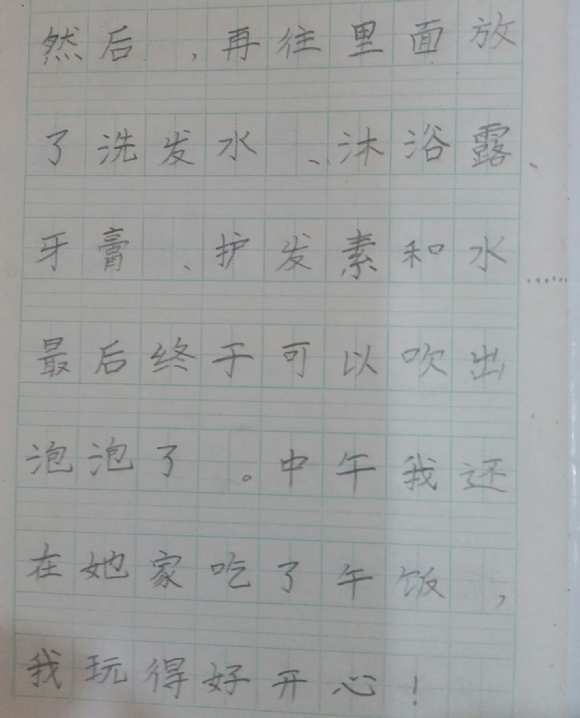 然后，再往里面放
了洗发水、沐浴露、
牙膏、护发素和水……
最后终于可以吹出
泡泡了。中午我还
在她家吃了午饭，
我玩得好开心！